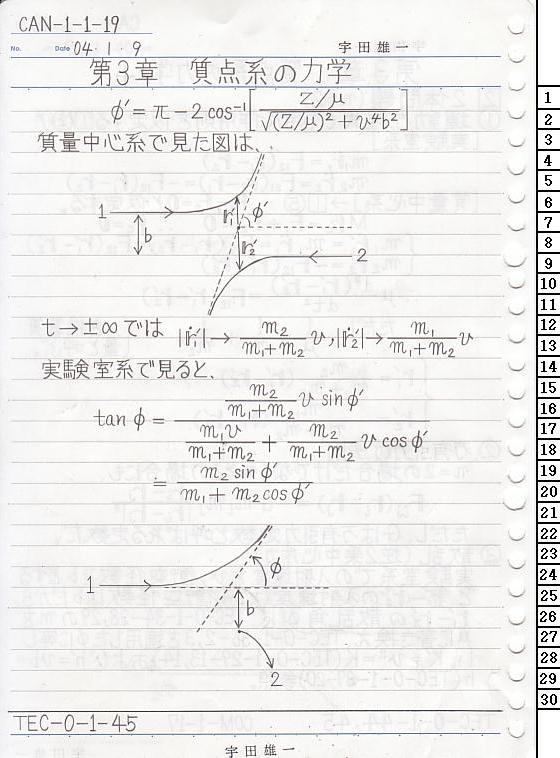 CAN-1-1-19
No. Date 04・1・9 宇田雄一
第3章 質点系の力学
ϕ′ = π − 2 cos⁻¹[ Z/μ / √((Z/μ)² + v⁴b²) ]
質量中心系で見た図は、
1 b r′₁ ϕ′
r′₂ 2
t → ±∞ では |ṙ′₁| → m₂/(m₁+m₂) v, |ṙ′₂| → m₁/(m₁+m₂) v
実験室系で見ると、
tan ϕ = ( m₂/(m₁+m₂) v sin ϕ′ ) / ( m₁v/(m₁+m₂) + m₂/(m₁+m₂) v cos ϕ′ )
= m₂ sin ϕ′ / (m₁ + m₂ cos ϕ′)
1 ϕ
b
2
TEC-0-1-45
宇田雄一
1
2
3
4
5
6
7
8
9
10
11
12
13
14
15
16
17
18
19
20
21
22
23
24
25
26
27
28
29
30